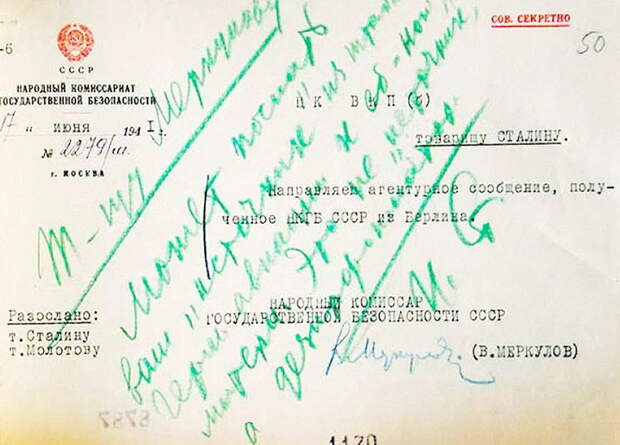 СОВ. СЕКРЕТНО
50
-6
СССР
НАРОДНЫЙ КОМИССАРИАТ
ГОСУДАРСТВЕННОЙ БЕЗОПАСНОСТИ
17 " июня 1941 г.
№ 2279/м
г. МОСКВА
ЦК ВКП(б)
товарищу СТАЛИНУ.
Направляем агентурное сообщение, полу-
ченное НКГБ СССР из Берлина.
НАРОДНЫЙ КОМИССАР
ГОСУДАРСТВЕННОЙ БЕЗОПАСНОСТИ СССР
(В.МЕРКУЛОВ)
Разослано:
т.Сталину
т.Молотову
Т-щу Меркулову
Может послать
ваш "источник" из штаба
герм. авиации к еб-ной
матери. Это не "источник",
а дезинформатор.
И. Ст
1170